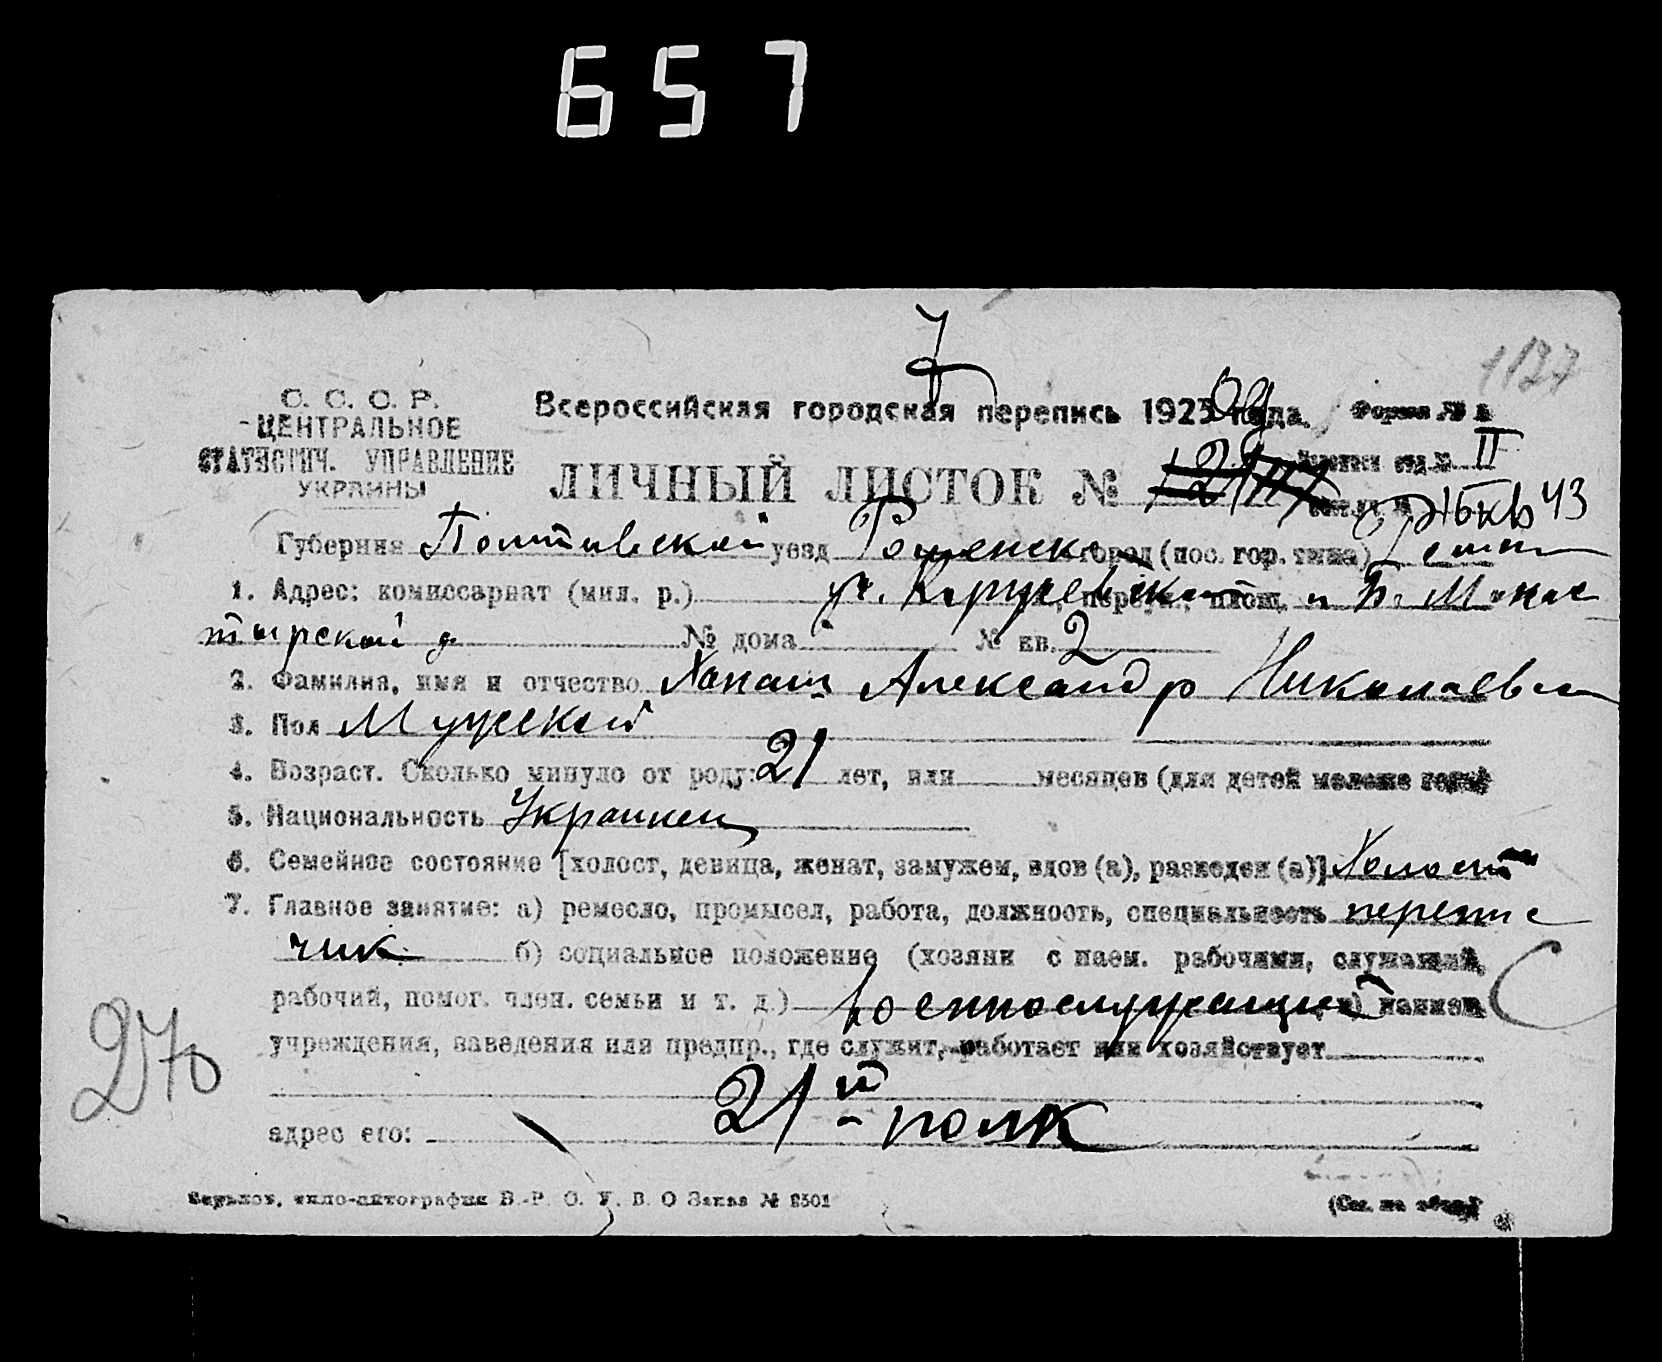 657
1137
С. С. С. Р. Всероссийская городская перепись 1923 года. Форма №
ЦЕНТРАЛЬНОЕ
СТАТИСТИЧ. УПРАВЛЕНИЕ II
УКРАИНЫ ЛИЧНЫЙ ЛИСТОК №
43
Губерния Полтавской уезд Роменско город (пос. гор. типа) Ромны
1. Адрес: комиссариат (мил. р.) ул. переул., площ. и Б. Монас
тырской д № дома № кв. 2
2. Фамилия, имя и отчество Александр Николаев
3. Пол Мужской
4. Возраст. Сколько минуло от роду: 21 лет, или месяцев (для детей моложе года)
5. Национальность Украинец
6. Семейное состояние [холост, девица, женат, замужем, вдов (а), разведен (а)] Холост
7. Главное занятие: а) ремесло, промысел, работа, должность, специальность перепис
чик б) социальное положение (хозяин с наем. рабочими, служащий,
рабочий, помог. член. семьи и т. д.) Военнослужащий в) наимен.
учреждения, заведения или предпр., где служит, работает или хозяйствует
270
21й полк
адрес его:
Харьков, типо-литография В.-Р. О. У. В. О Заказ № 2501 (См. на обор.)